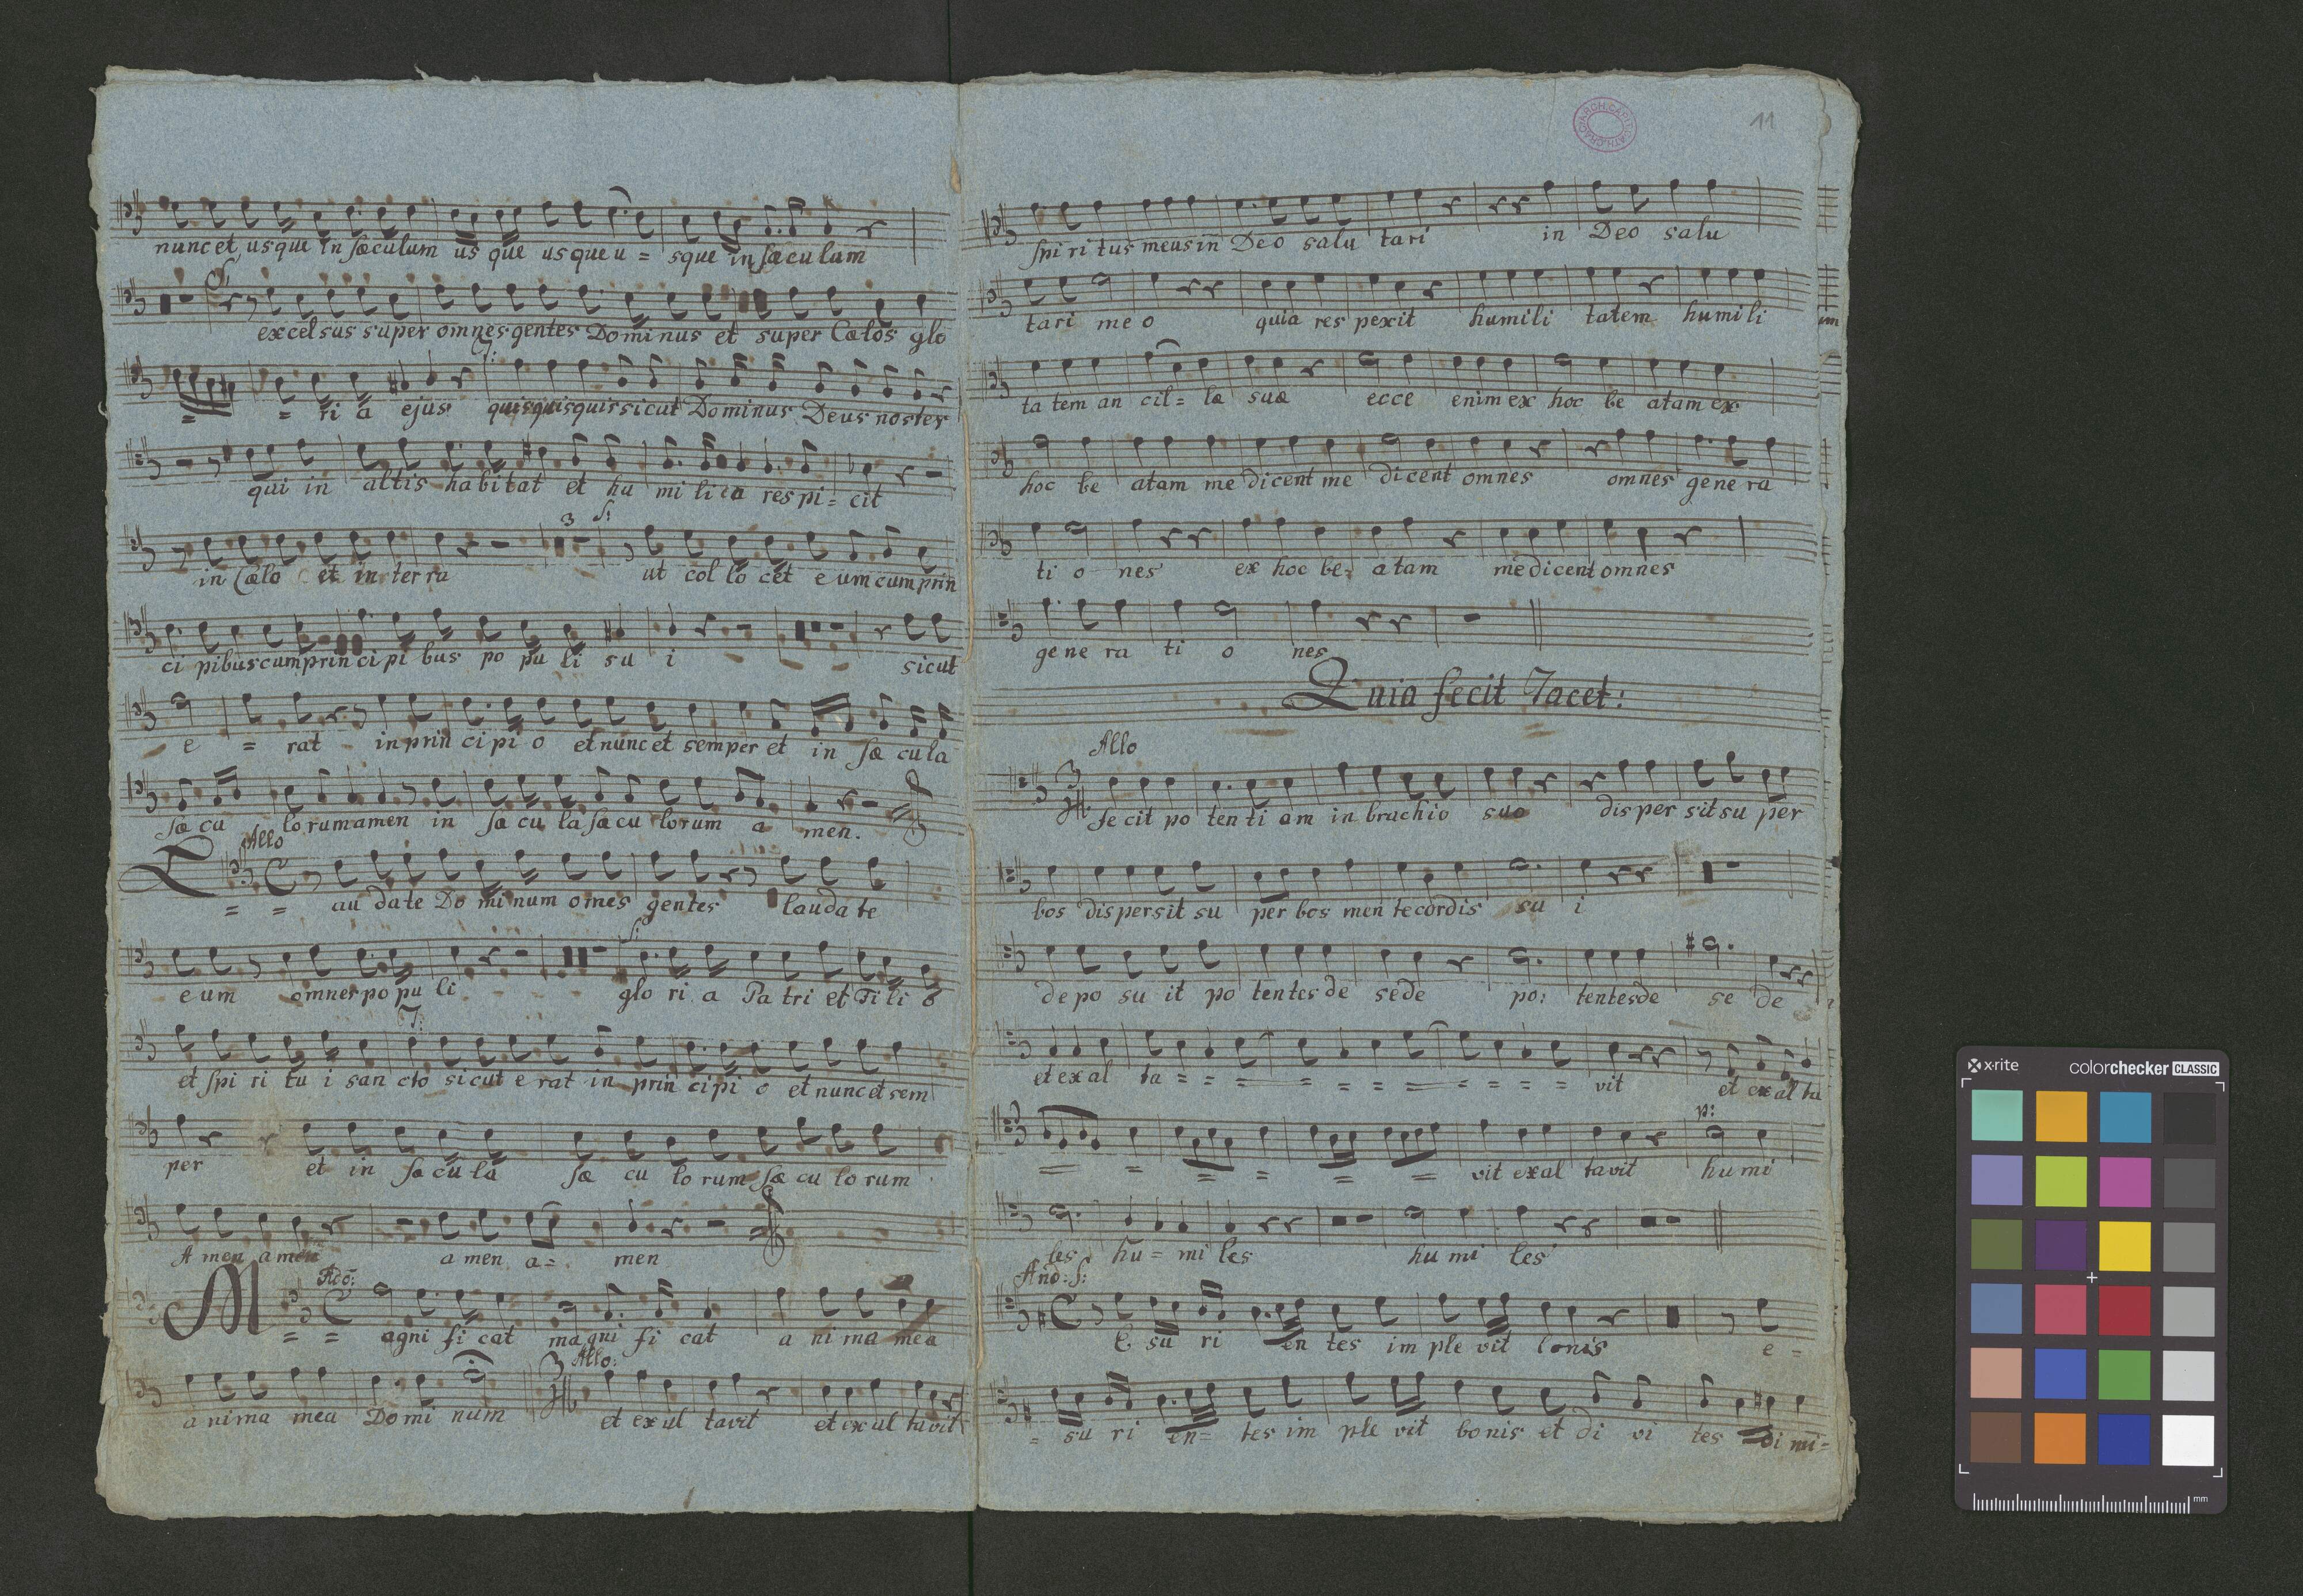 nunc et usque in sæculum us que usque u = sque in sæculum
S:
excelsus super omnes gentes Dominus et super Cœlos glo
T:
= = ri a ejus quisquisquis sicut Dominus Deus noster
qui in altis habitat et hu mi li ia respi = cit
3 S:
in Cælo et in terra ut col lo cet e um cum prin
ci pibus cum prin ci pi bus po pu li su i sicut
e = rat in prin ci pi o et nunc et semper et in sæ cu la
sæ cu lo rum amen in sæ cu la sæcu lorum a men.
Allo
L = = au da te Do mi num omnes gentes lauda te
S:
e um omnes po pu li glo ri a Pa tri et Fi li o
T:
et spi ri tu i san cto sicut e rat in prin ci pi o et nunc et sem
per et in sæ cu la sæ cu lo rum sæ cu lo rum
A men amen a men a = men
Ado:
M = = agni fi cat magni fi cat a ni ma mea
Allo:
a ni ma mea Do mi num et ex ul tavit et ex ul tavit
11
spi ri tus meus in Deo salu tari in Deo salu
tari me o quia res pexit humili tatem humili
ta tem an cil = læ suæ ecce enim ex hoc be atam ex
hoc be atam me dicent me dicent omnes omnes gene ra
ti o nes ex hoc be = atam me dicent omnes
ge ne ra ti o nes
Quia fecit Tacet:
Allo
3/4. fe cit po ten ti am in brachio suo dis per sit su per
bos dis persit su per bos men te cordis su i
de po su it po tentes de sede po: tentes de se de
et ex al ta = = = = = = = = = = = vit et ex al ta
p:
= = = = = = vit ex al tavit hu mi
les hu = mi les hu mi les
And: S:
E su ri en tes im ple vit bonis e =
= su ri en = tes im ple vit bo nis et di vi tes = di mi =
x·rite
colorchecker CLASSIC
mm